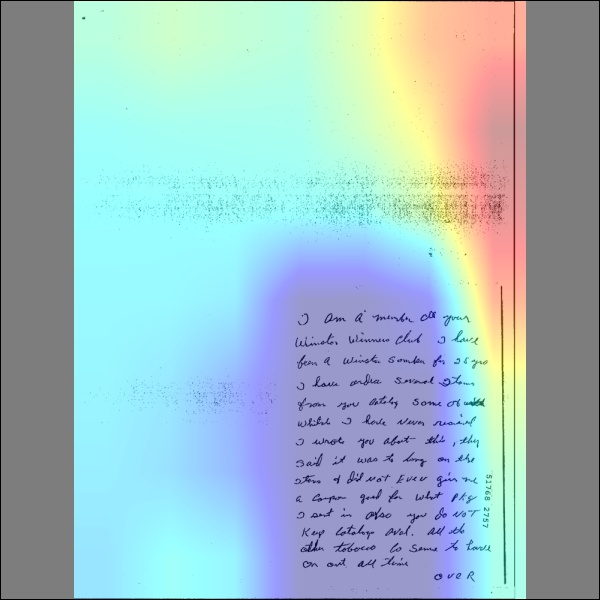 I am a member of your
Winston Winners Club I have
been a Winston Somker for 25 yrs
I have ordre several Items
from you catolog some of
whitch I have Never recived
I wrote you about this, they
said it was to long on the
Items & did NOT EVER give me
a coupon good for what PKg
I sent in also you do NOT
Keep catologs aval. all the
other tobacco co seme to have
on out all time
OVER
51768 2757